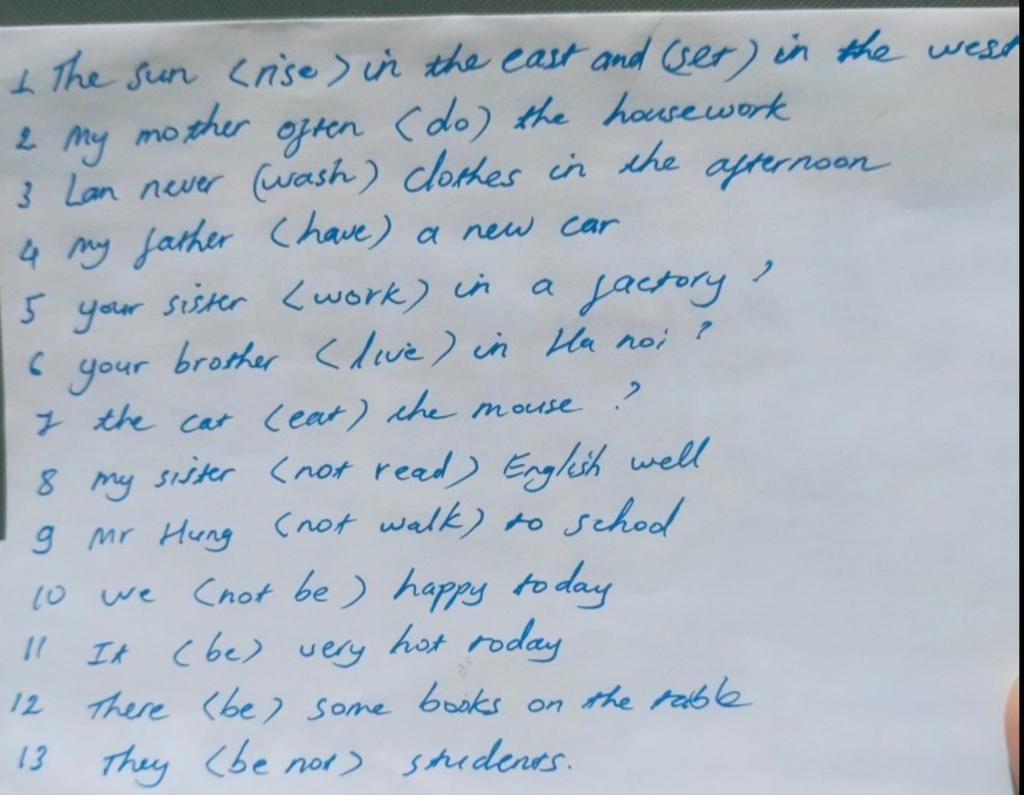 1 The sun (rise) in the east and (set) in the west
2 My mother often (do) the housework
3 Lan never (wash) clothes in the afternoon
4 My father (have) a new car
5 your sister (work) in a factory ?
6 your brother (live) in Ha noi ?
7 the cat (eat) the mouse ?
8 my sister (not read) English well
9 Mr Hung (not walk) to school
10 we (not be) happy today
11 It (be) very hot today
12 There (be) some books on the table
13 They (be not) students.